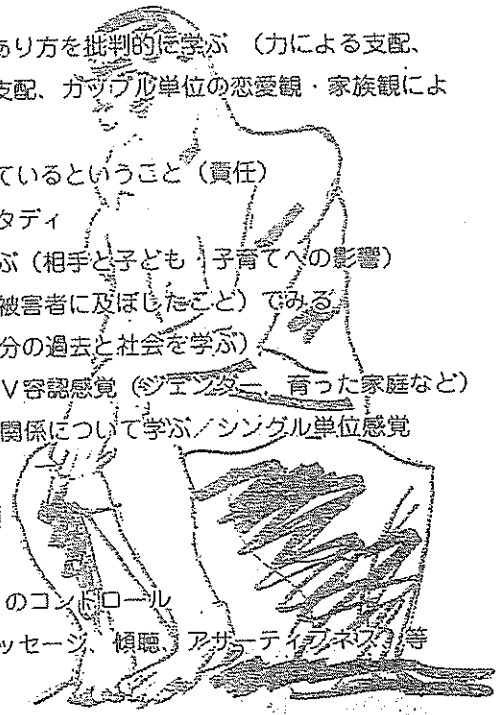 あり方を批判的に学ぶ （力による支配、
支配、カップル単位の恋愛観・家族観によ
ているということ（責任）
タディ
ぶ（相手と子ども 子育てへの影響）
被害者に及ぼしたこと）でみる
分の過去と社会を学ぶ）
Ｖ容認感覚（ジェンダー、育った家庭など）
関係について学ぶ／シングル単位感覚
のコントロール
ッセージ、傾聴、アサーティブネス 等